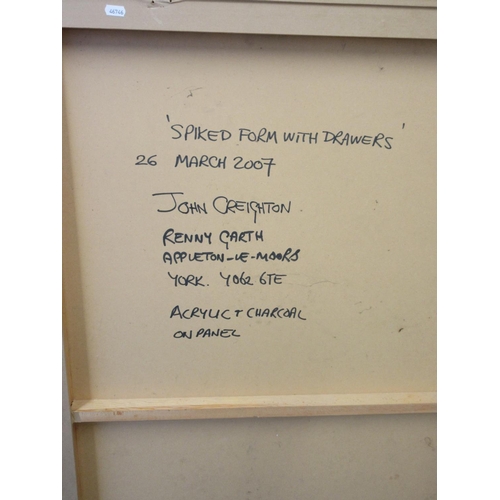 'SPIKED FORM WITH DRAWERS'
26 MARCH 2007
JOHN CREIGHTON
RENNY GARTH
APPLETON-LE-MOORS
YORK. YO62 6TE
ACRYLIC + CHARCOAL
ON PANEL